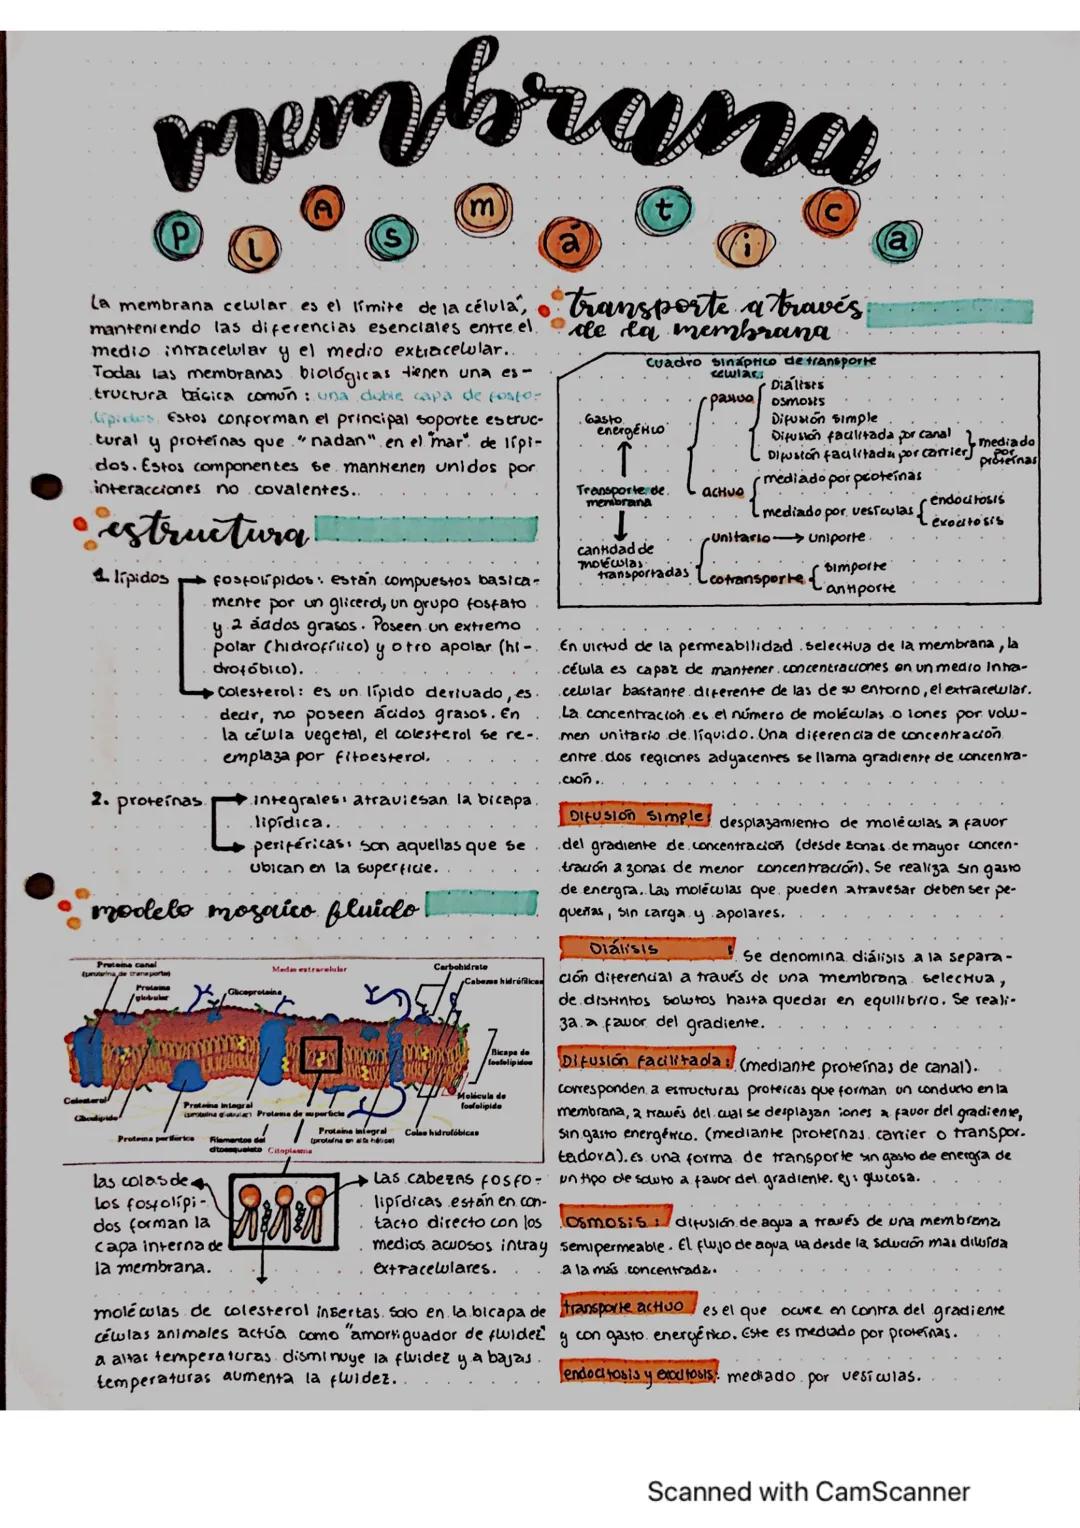 membrana
PlAsmática
La membrana celular es el límite de la célula,
manteniendo las diferencias esenciales entre el
medio intracelular y el medio extracelular..
Todas las membranas biológicas tienen una es-
tructura básica común: una doble capa de fosfo-
lípidos. Estos conforman el principal soporte estruc-
tural y proteínas que "nadan" en el "mar" de lípi-
dos. Estos componentes se mantienen unidos por
interacciones no covalentes..
estructura
1. lípidos
fosfolípidos: están compuestos basica-
mente por un glicerol, un grupo fosfato
y 2 ácidos grasos. Poseen un extremo
polar (hidrofílico) y otro apolar (hi-
drofóbico).
colesterol: es un lípido derivado, es
decir, no poseen ácidos grasos. En
la célula vegetal, el colesterol se re-
emplaza por fitoesterol.
2. proteínas
integrales: atraviesan la bicapa
lipídica..
periféricas: son aquellas que se
ubican en la superficie.
modelo mosaico fluido
Proteína canal
(proteína de transporte)
Medio extracelular
Carbohidrato
Proteína
globular
Glicoproteína
Cabezas hidrofílicas
Bicapa de
fosfolípidos
Colesterol
Glicolípido
Proteína integral
(proteína globular)
Proteína de superficie
Molécula de
fosfolípido
Proteína periférica
Filamentos del
citoesqueleto
Citoplasma
Proteína integral
(proteína en alfa hélice)
Colas hidrofóbicas
las colas de
los fosfolípi-
dos forman la
capa interna de
la membrana.
Las cabezas fosfo-
lipídicas están en con-
tacto directo con los
medios acuosos intra y
extracelulares.
moléculas de colesterol insertas solo en la bicapa de
células animales actúa como "amortiguador de fluidez"
a altas temperaturas disminuye la fluidez y a bajas
temperaturas aumenta la fluidez..
transporte a través
de la membrana
Cuadro sináptico de transporte
celular:
Gasto
energético
Transporte de
membrana
cantidad de
moléculas
transportadas
pasivo
Diálisis
osmosis
Difusión simple
Difusión facilitada por canal
Difusión facilitada por carrier
mediado
por
proteínas
activo
mediado por proteínas
mediado por vesículas
endocitosis
exocitosis
unitario → uniporte
cotransporte
simporte
antiporte
En virtud de la permeabilidad selectiva de la membrana, la
célula es capaz de mantener concentraciones en un medio intra-
celular bastante diferente de las de su entorno, el extracelular.
La concentración es el número de moléculas o iones por volu-
men unitario de líquido. Una diferencia de concentración
entre dos regiones adyacentes se llama gradiente de concentra-
ción..
Difusión simple: desplazamiento de moléculas a favor
del gradiente de concentración (desde zonas de mayor concen-
tración a zonas de menor concentración). Se realiza sin gasto
de energía. Las moléculas que pueden atravesar deben ser pe-
queñas, sin carga y apolares.
Diálisis : Se denomina diálisis a la separa-
ción diferencial a través de una membrana selectiva,
de distintos solutos hasta quedar en equilibrio. Se reali-
za a favor del gradiente.
Difusión facilitada: (mediante proteínas de canal).
corresponden a estructuras proteicas que forman un conducto en la
membrana, a través del cual se desplazan iones a favor del gradiente,
sin gasto energético. (mediante proteínas carrier o transpor-
tadora). es una forma de transporte sin gasto de energía de
un tipo de soluto a favor del gradiente. ej: glucosa.
Osmosis: difusión de agua a través de una membrana
semipermeable. El flujo de agua va desde la solución mas diluída
a la más concentrada.
transporte activo es el que ocurre en contra del gradiente
y con gasto energético. Este es mediado por proteínas.
endocitosis y exocitosis: mediado por vesículas.
Scanned with CamScanner